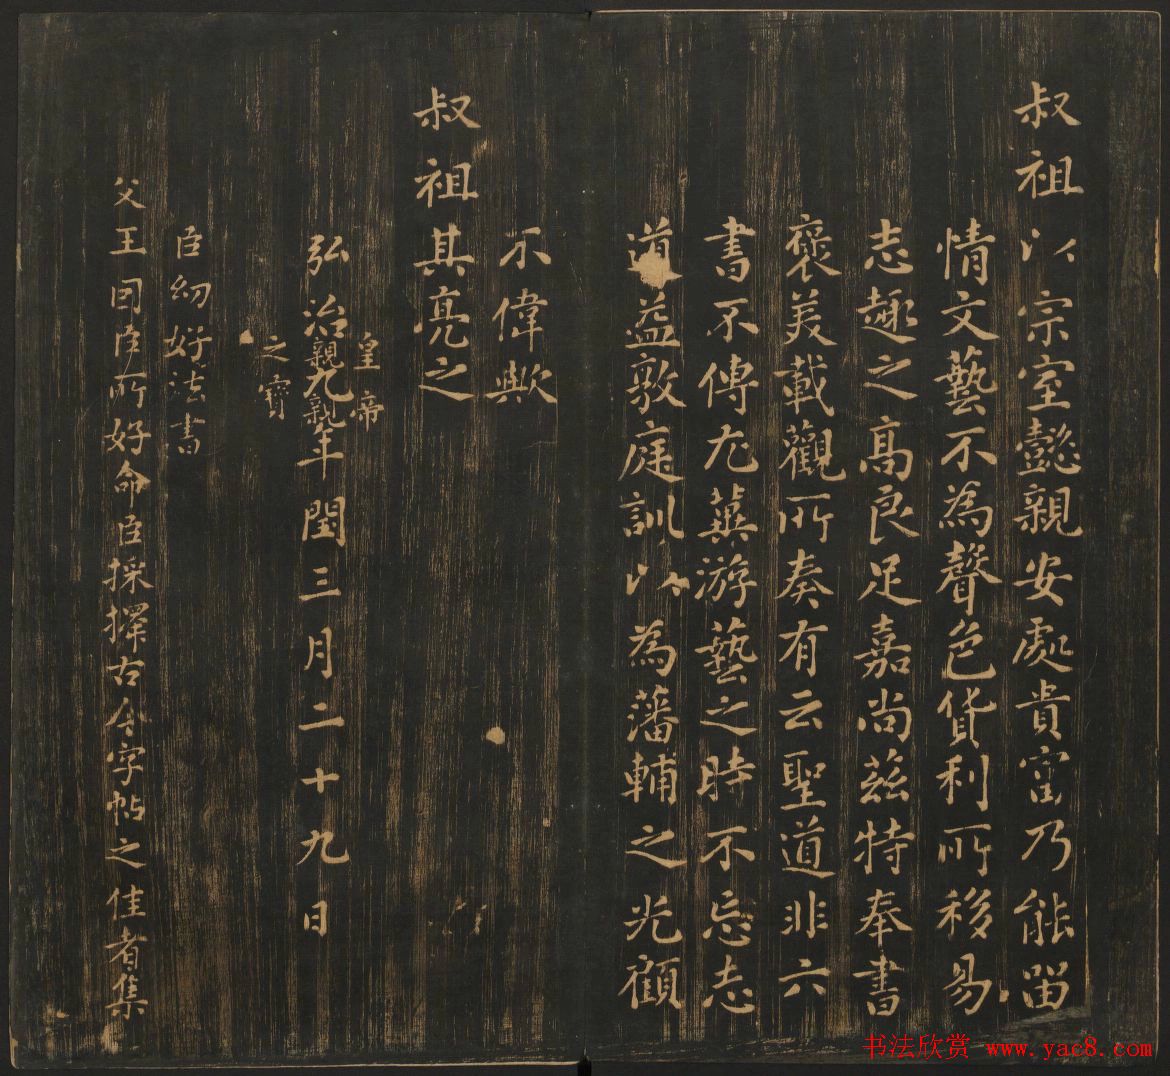 叔祖以宗室懿親安處貴富乃能留
情文藝不為聲色貨利所移易
志趣之高良足嘉尚茲特奉書
褒美載觀所奏有云聖道非六
書不傳尤冀游藝之時不忘志
道益敦庭訓以為藩輔之光顧
不偉歟
叔祖其亮之
弘治九年閏三月二十九日
皇帝
親親
之寶
臣幼好法書
父王因臣所好命臣採擇古今字帖之佳者集
书法欣赏 www.yac8.com